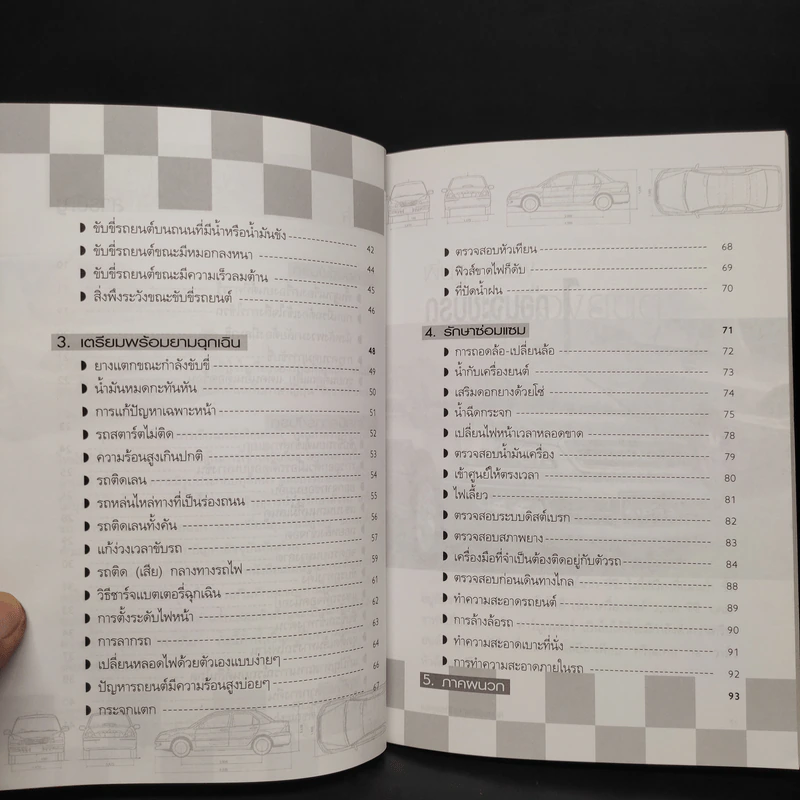 ขับขี่รถยนต์บนถนนที่มีน้ำหรือน้ำมันขัง 42
ขับขี่รถยนต์ขณะมีหมอกลงหนา 44
ขับขี่รถยนต์ขณะมีความเร็วลมต้าน 45
สิ่งพึงระวังขณะขับขี่รถยนต์ 46
3. เตรียมพร้อมยามฉุกเฉิน 48
ยางแตกขณะกำลังขับขี่ 49
น้ำมันหมดกะทันหัน 50
การแก้ปัญหาเฉพาะหน้า 51
รถสตาร์ตไม่ติด 52
ความร้อนสูงเกินปกติ 53
รถติดเลน 54
รถหล่นไหล่ทางที่เป็นร่องถนน 55
รถติดเลนทั้งคัน 56
แก้ง่วงเวลาขับรถ 57
รถติด (เสีย) กลางทางรถไฟ 59
วิธีชาร์จแบตเตอรี่ฉุกเฉิน 61
การตั้งระดับไฟหน้า 62
การลากรถ 63
เปลี่ยนหลอดไฟด้วยตัวเองแบบง่ายๆ 64
ปัญหารถยนต์มีความร้อนสูงบ่อยๆ 66
กระจกแตก 67
ตรวจสอบหัวเทียน 68
ฟิวส์ขาดไฟก็ดับ 69
ที่ปัดน้ำฝน 70
4. รักษาซ่อมแซม 71
การถอดล้อ-เปลี่ยนล้อ 72
น้ำกับเครื่องยนต์ 73
เสริมดอกยางด้วยโซ่ 74
น้ำฉีดกระจก 75
เปลี่ยนไฟหน้าเวลาหลอดขาด 78
ตรวจสอบน้ำมันเครื่อง 79
เข้าศูนย์ให้ตรงเวลา 80
ไฟเลี้ยว 81
ตรวจสอบระบบดิสต์เบรก 82
ตรวจสอบสภาพยาง 83
เครื่องมือที่จำเป็นต้องติดอยู่กับตัวรถ 84
ตรวจสอบก่อนเดินทางไกล 88
ทำความสะอาดรถยนต์ 89
การล้างล้อรถ 90
ทำความสะอาดเบาะที่นั่ง 91
การทำความสะอาดภายในรถ 92
5. ภาคผนวก 93